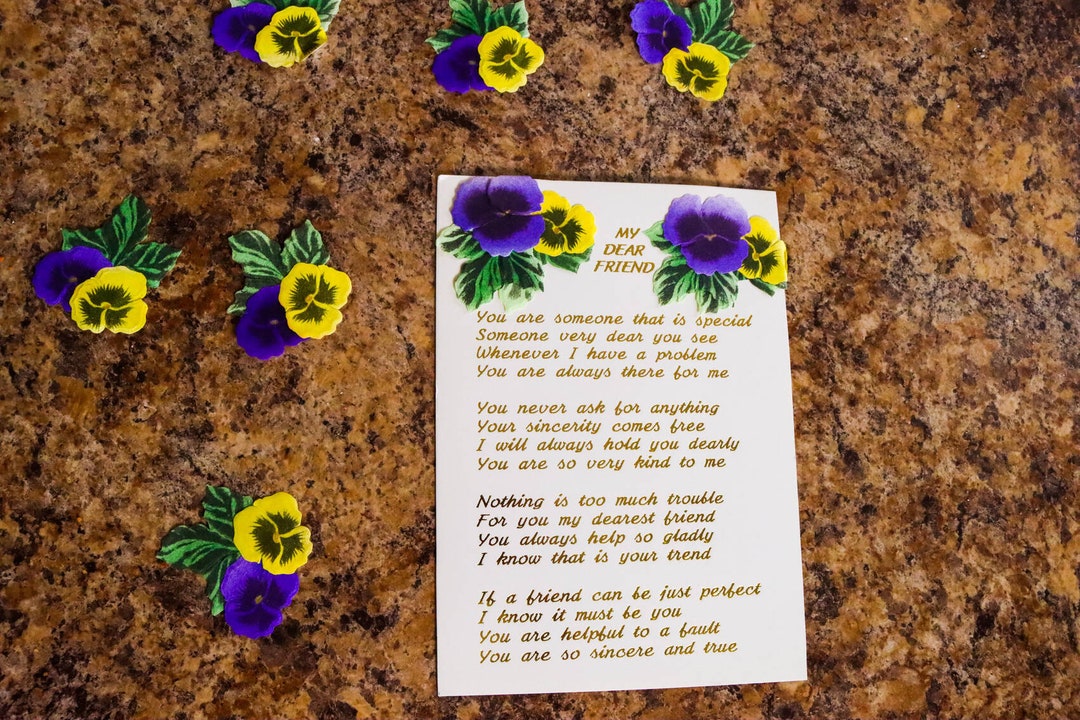 MY
DEAR
FRIEND
You are someone that is special
Someone very dear you see
Whenever I have a problem
You are always there for me
You never ask for anything
Your sincerity comes free
I will always hold you dearly
You are so very kind to me
Nothing is too much trouble
For you my dearest friend
You always help so gladly
I know that is your trend
If a friend can be just perfect
I know it must be you
You are helpful to a fault
You are so sincere and true